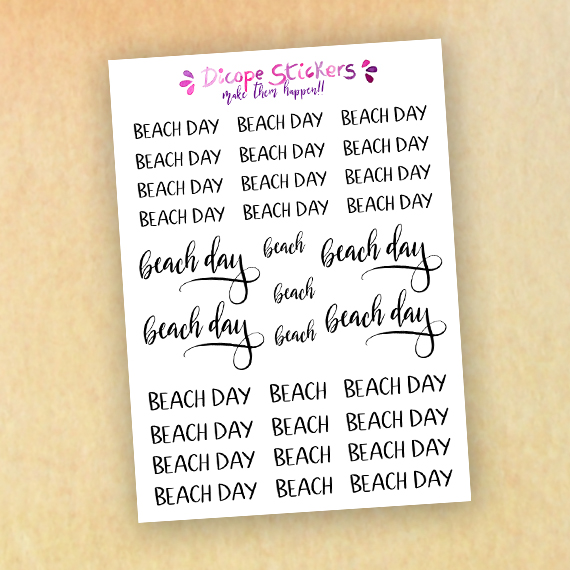 Dicope Stickers
make them happen!!
BEACH DAY BEACH DAY BEACH DAY
BEACH DAY BEACH DAY BEACH DAY
BEACH DAY BEACH DAY BEACH DAY
BEACH DAY BEACH DAY BEACH DAY
beach day beach beach day
beach
beach day beach beach day
BEACH DAY BEACH BEACH DAY
BEACH DAY BEACH BEACH DAY
BEACH DAY BEACH BEACH DAY
BEACH DAY BEACH BEACH DAY